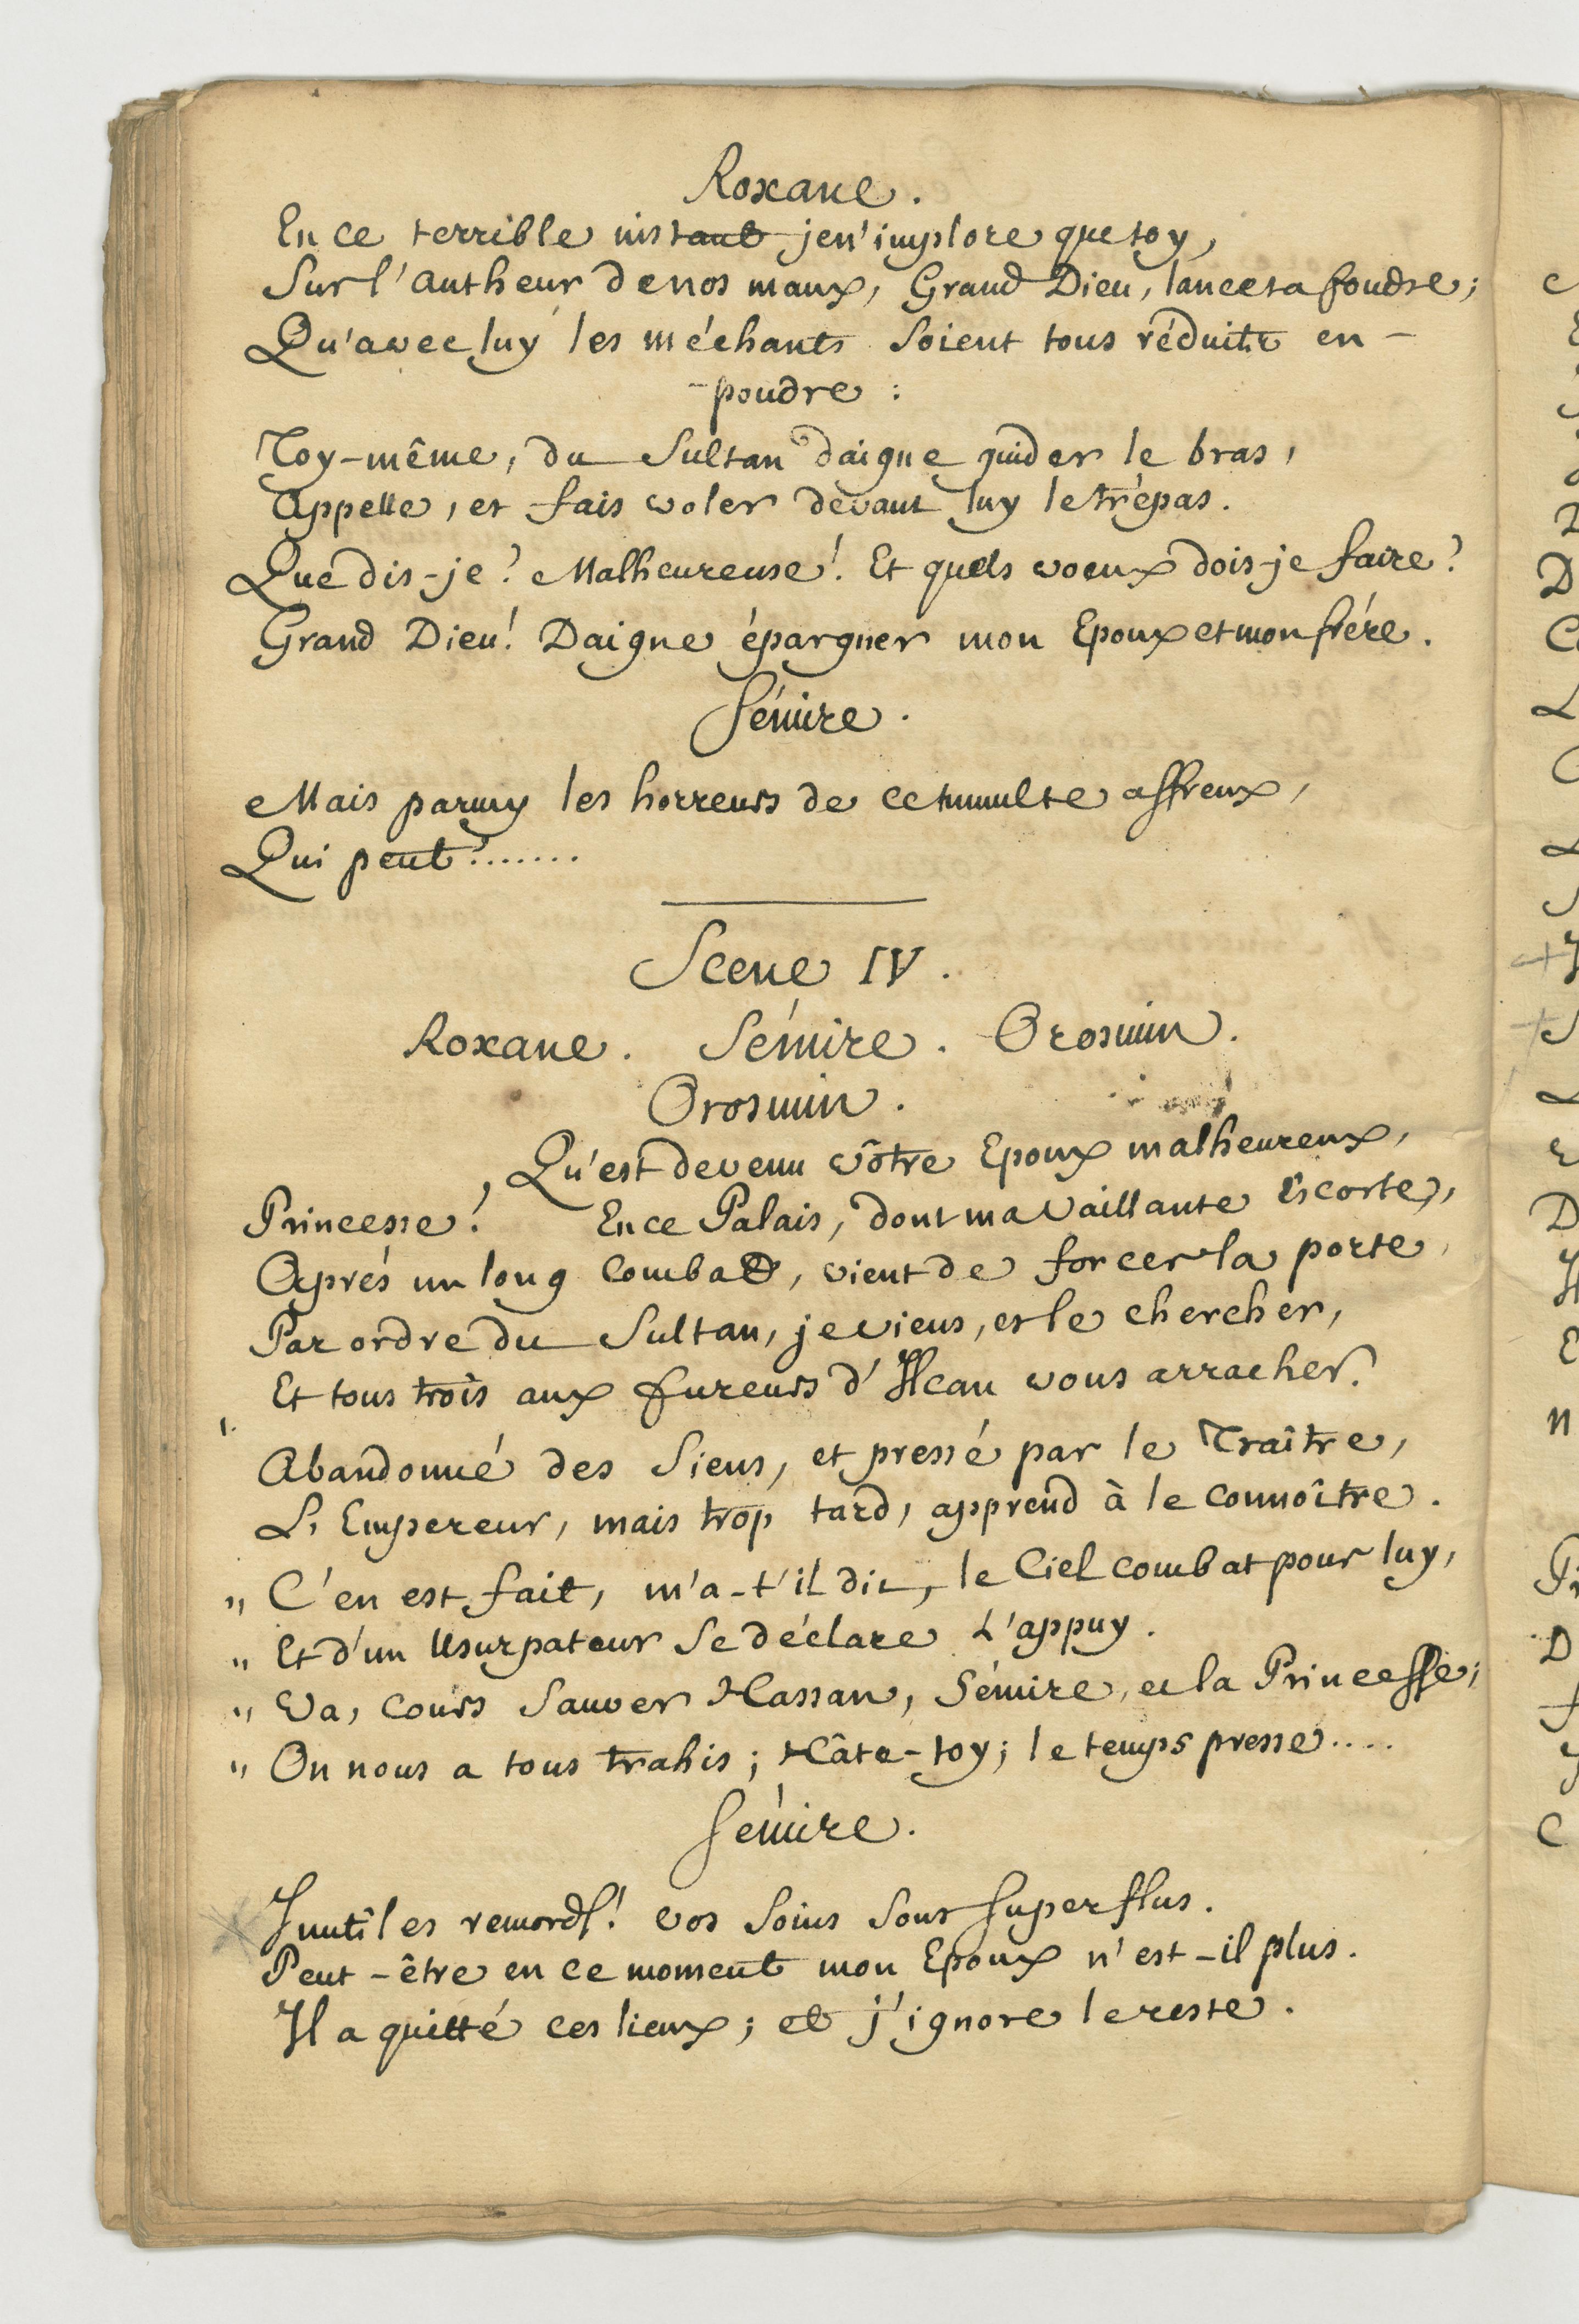 Roxane.
En ce terrible instant je n'implore que toy,
Sur l'autheur de nos maux, Grand Dieu, lance ta foudre;
Qu'avec luy les méchants soient tous réduits en-
-poudre:
Toy-même, du Sultan daigne guider le bras,
Appelle, et fais voler devant luy le trépas.
Que dis-je? Malheureuse! Et quels voeux dois-je faire?
Grand Dieu! Daigne épargner mon Epoux et mon frére.
Sémire.
Mais parmy les horreurs de ce tumulte affreux,
Qui peut?.......
Scene IV.
Roxane. Sémire. Orosmin.
Orosmin.
Qu'est devenu vôtre Epoux malheureux,
Princesse! En ce Palais, dont ma vaillante Escorte,
Aprés un long combat, vient de forcer la porte,
Par ordre du Sultan, je viens, et le chercher,
Et tous trois aux fureurs d'Ilcan vous arracher.
Abandonné des Siens, et pressé par le Traître,
L'Empereur, mais trop tard, apprend à le connoître.
" C'en est fait, m'a-t'il dit, le Ciel combat pour luy,
" Et d'un Usurpateur se déclare L'appuy.
" Va, cours sauver Hassan, Sémire, et la Princesse;
" On nous a tous trahis; Hâte-toy; le temps presse....
Sémire.
Inutiles remords! vos soins sont superflus.
Peut-être en ce moment mon Epoux n'est-il plus.
Il a quitté ces lieux; et j'ignore le reste.